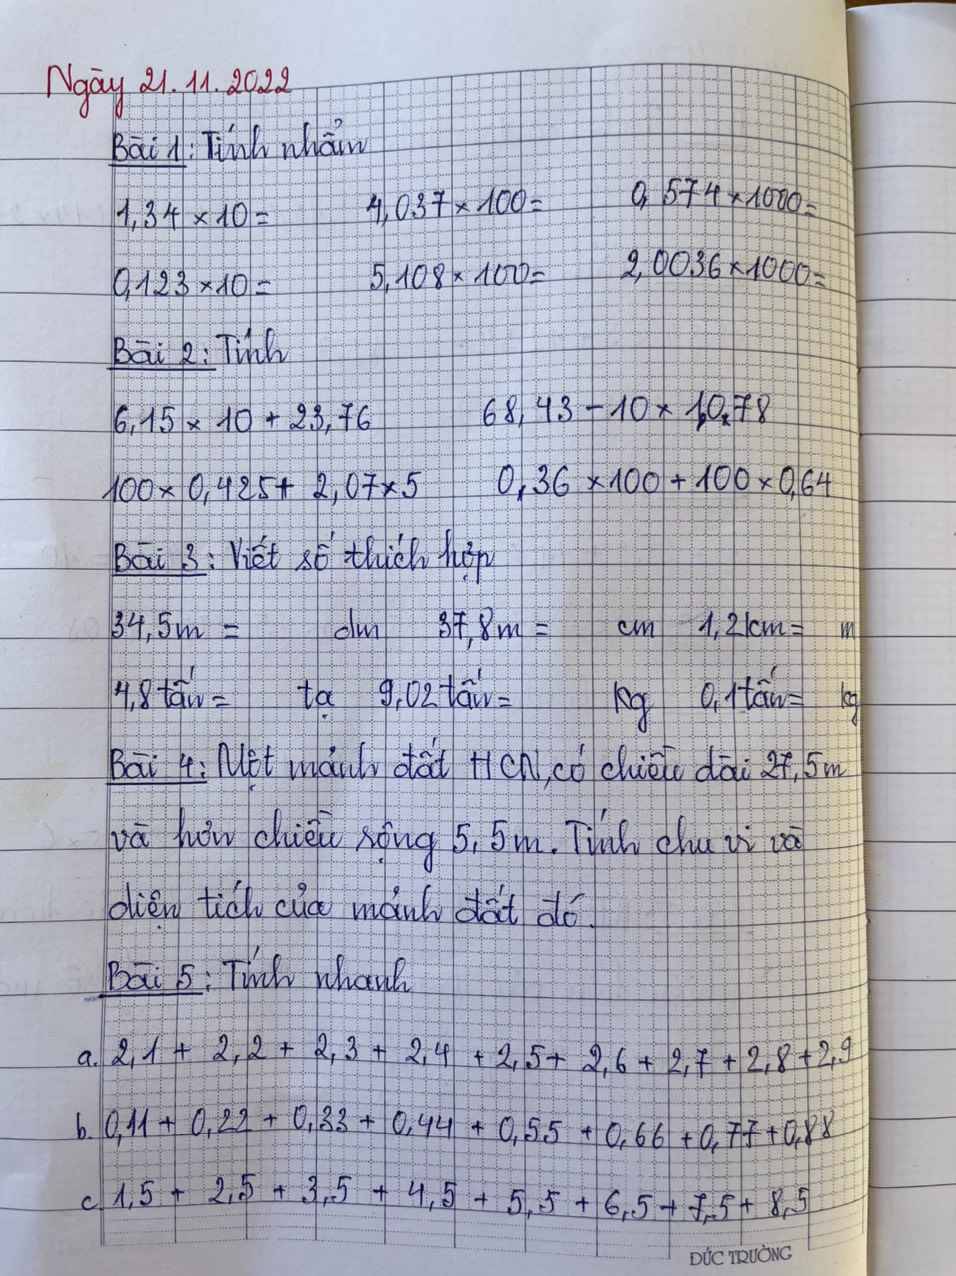 Ngày 21.11.2022
Bài 1: Tính nhẩm
1,34 × 10 = 4,037 × 100 = 0,574 × 1000 =
0,123 × 10 = 5,108 × 100 = 2,0036 × 1000 =
Bài 2: Tính
6,15 × 10 + 23,76 68,43 - 10 × 1,078
100 × 0,425 + 2,07 × 5 0,36 × 100 + 100 × 0,64
Bài 3: Viết số thích hợp
34,5m = dm 37,8m = cm 1,2km = m
4,8 tấn = tạ 9,02 tấn = kg 0,1 tấn = kg
Bài 4: Một mảnh đất HCN, có chiều dài 27,5m
và hơn chiều rộng 5,5m. Tính chu vi và
diện tích của mảnh đất đó.
Bài 5: Tính nhanh
a. 2,1 + 2,2 + 2,3 + 2,4 + 2,5 + 2,6 + 2,7 + 2,8 + 2,9
b. 0,11 + 0,22 + 0,33 + 0,44 + 0,55 + 0,66 + 0,77 + 0,88
c. 1,5 + 2,5 + 3,5 + 4,5 + 5,5 + 6,5 + 7,5 + 8,5
ĐỨC TRƯỜNG